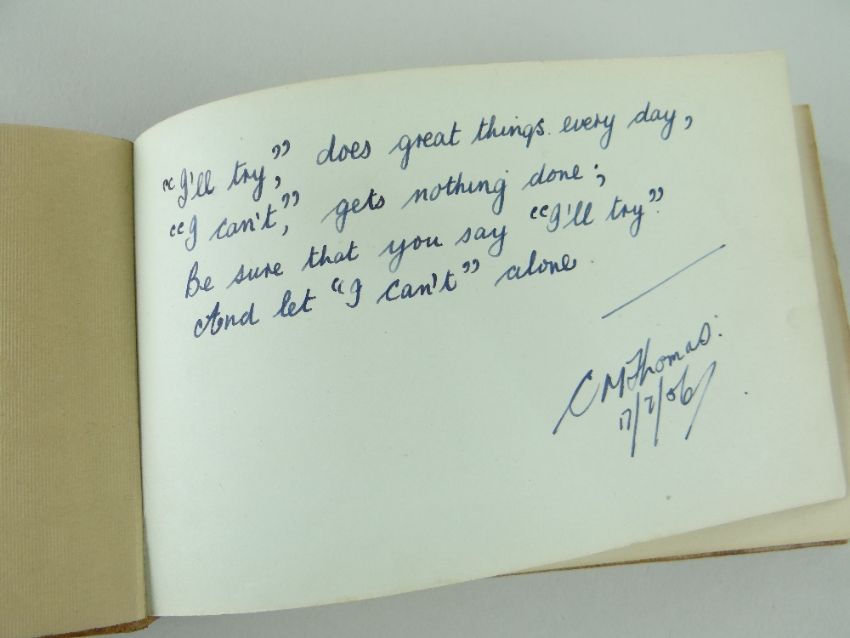 “I'll try,” does great things every day,
“I can't,” gets nothing done;
Be sure that you say “I'll try”
And let “I can't” alone.
C M Thomas.
17/7/06